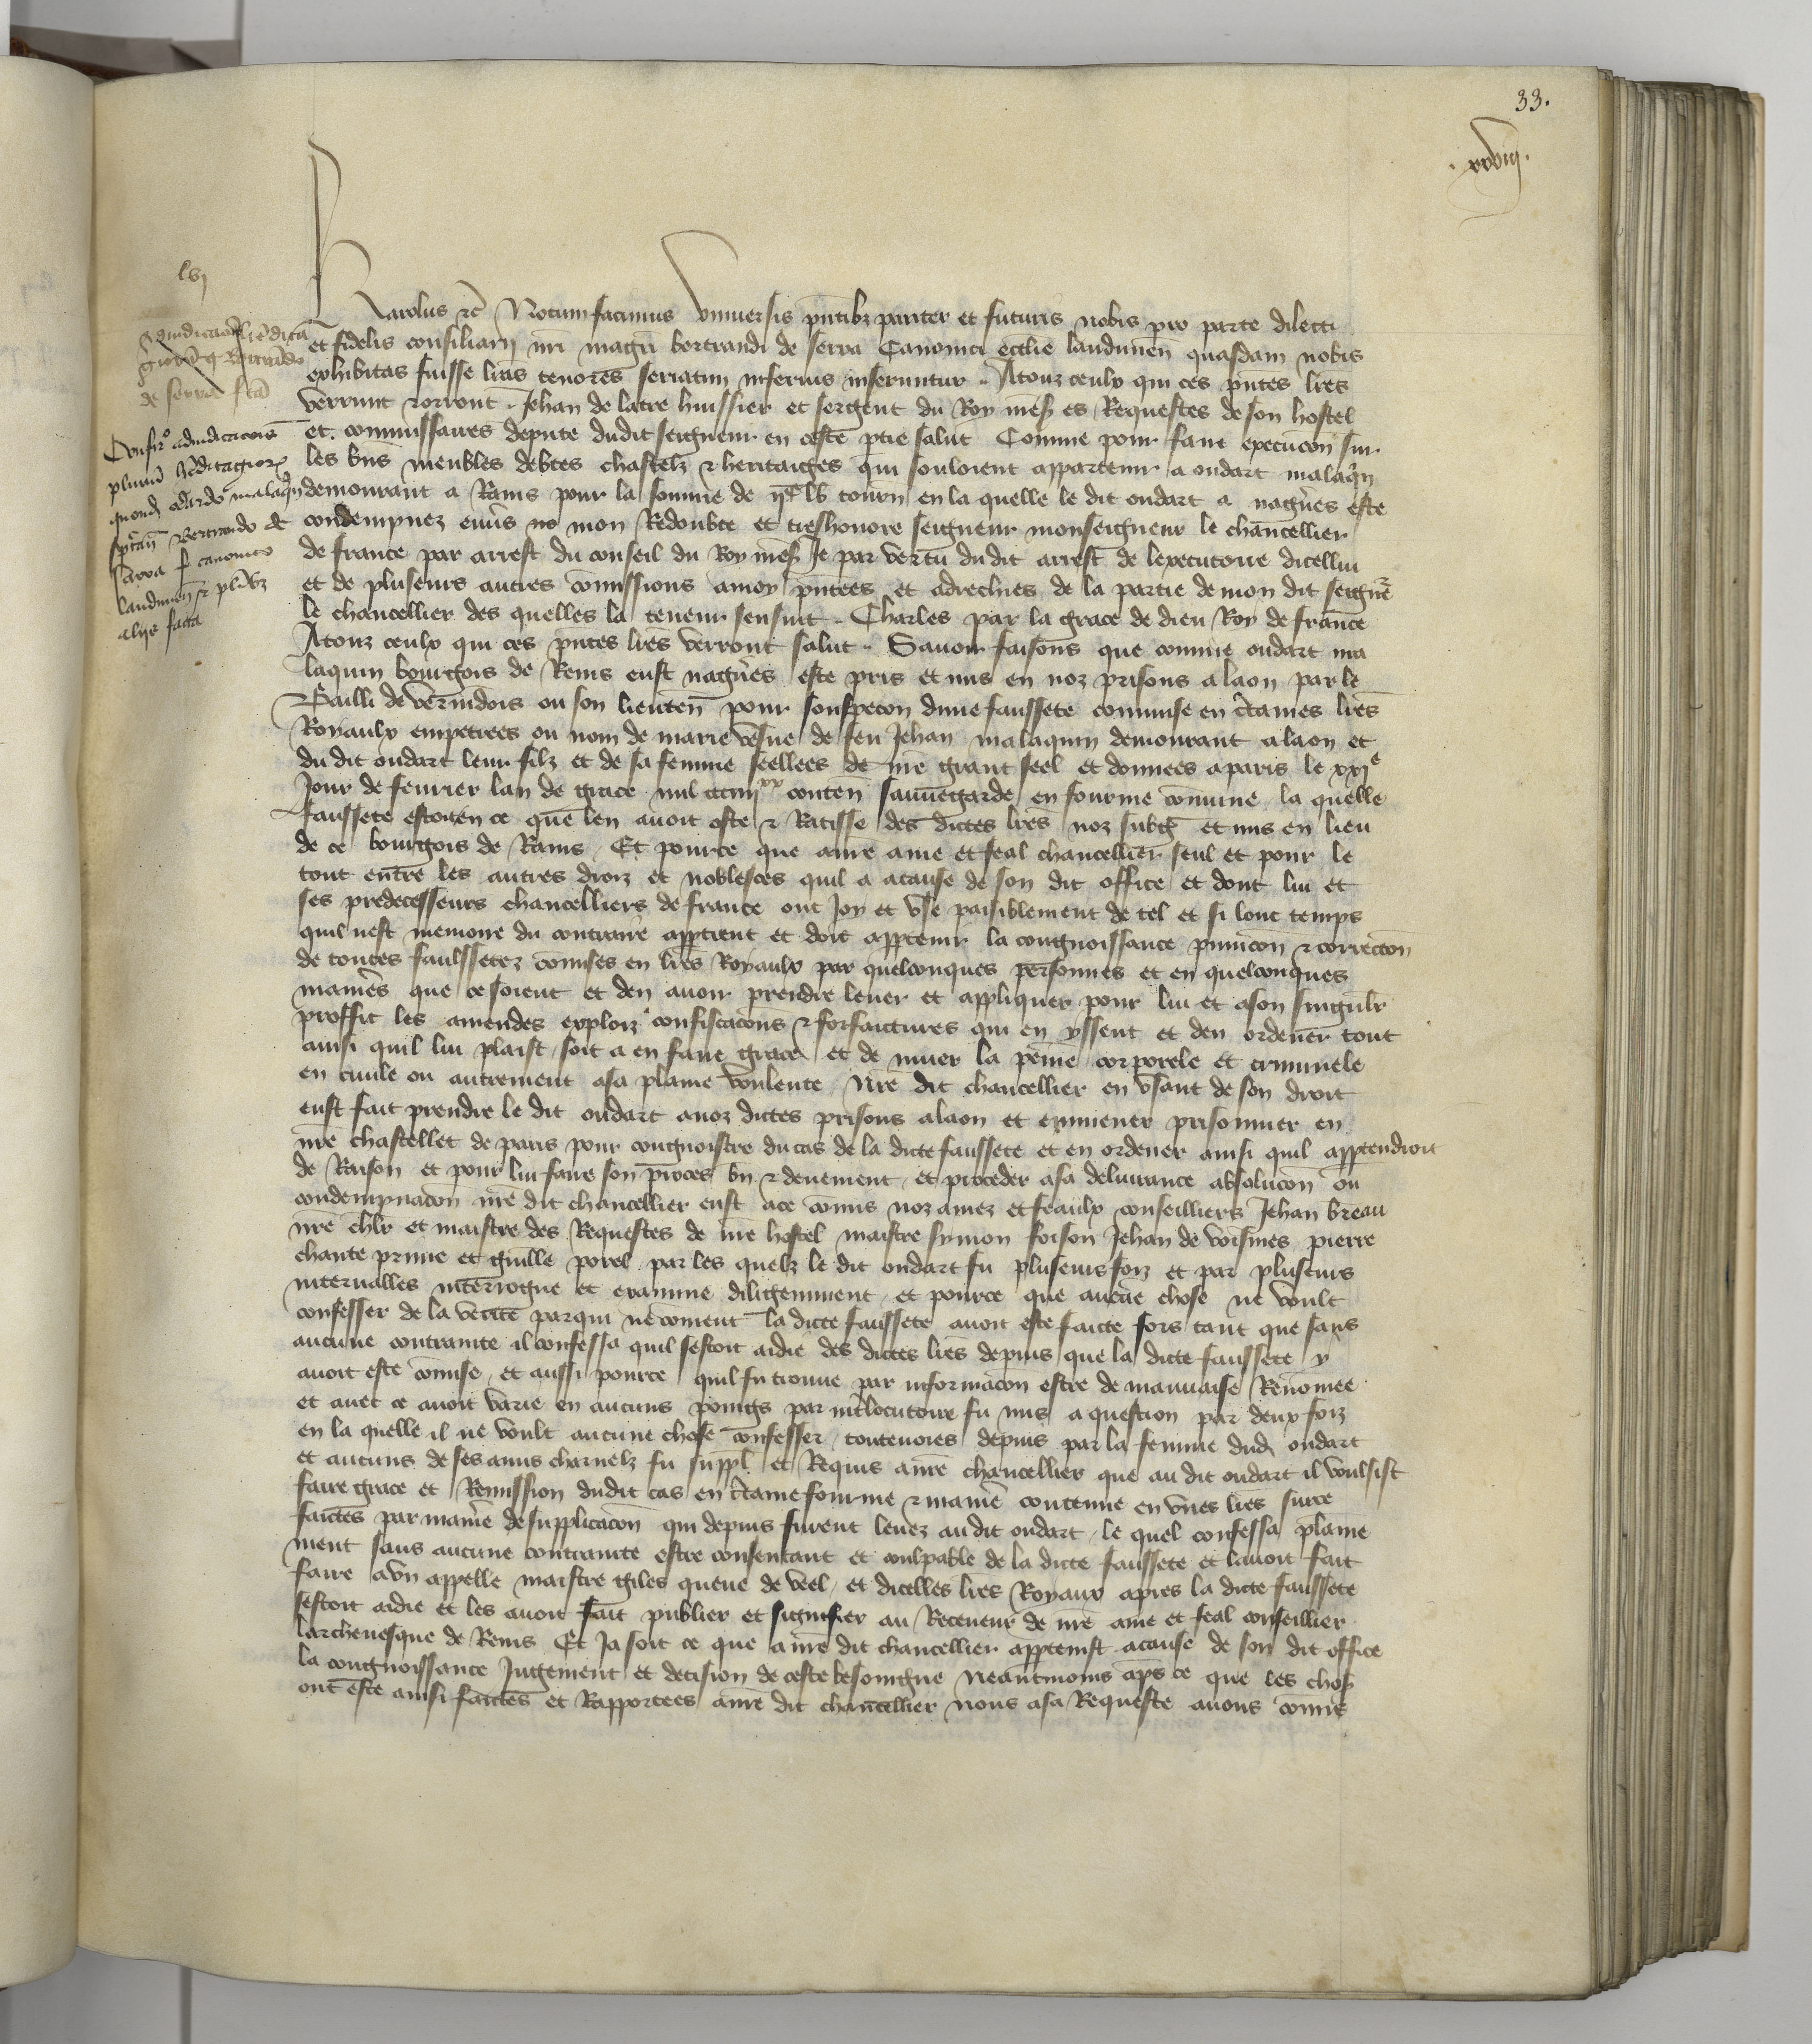 33.
.xxviij.
lvj
de serra
Confirmo adiudicacionis
plurium hereditagiorum
quond oudardo malaquin
Bertrando de
sarra canonico
laudunen et plurbz
alijs facta
Karolus etc Notum facimus vniuersis pntibz pariter et futuris nobis pro parte dilecti
et fidelis consiliarij nri magri bertrandi de serra Canonici ecclie laudunen quasdam nobis
exhibitas fuisse lras tenores seriatim inferius inseruntur. Atouz ceulx qui ces pntes lres
verrunt et orront. Jehan de latre huissier et sergent du Roy nres es Requestes de son hostel
et commissaires depute dudit seigneur en ceste ptie salut Comme pour faire execucon sur
les bns meubles debtes chastelz et heritaiges qui souloient appartenir a oudart malaqin
demourant a Rains pour la somme de lb tourn en la quelle le dit oudart a nagres este
condempnez enuers mon Redoubte et treshonore seigneur monseigneur le chancellier
de france par arrest du conseil du Roy nres Je par vertu dudit arrest de lexecutoire dicellui
et de pluseurs autres comissions amoy pntees et adrecines de la partie de mon dit seigne
le chancellier des quelles la teneur sensuit. Charles par la grace de dieu Roy de france
Atouz ceulx qui ces pntes lres verront salut. Sauoir faisons que comme oudart ma
laquin bourgois de Reins eust nagres este pris et mis en noz prisons alaon par le
Bailli de vermdois ou son lieuten pour souspecon dune faussete commise en ctaines lres
Royaulx empetrees ou nom de marie vesue de feu Jehan malaquin demourant alaon et
du dit oudart leur filz et de sa femme seellees de nre grant seel et donnees aparis le xxje
Jour de feurier lan de grace mil ccc iiijxx conten sauuegarde en fourme comune la quelle
faussete estoit en ce que len auoit oste et Ratisse des dictes lres noz subgz et mis en lieu
de ce bourgois de Rains. Et pource que anre ame et feal chancellier seul et pour le
tout entre les autres droiz et noblesces quil a acause de son dit office et dont lui et
ses predecesseurs chancelliers de france ont joy et vse paisiblement de tel et si lonc temps
quil nest memoire du contraire apptient et doit apptenir la congnoissance punicon et correccon
de toutes faulssetez comises en lres Royaulx par quelconques personnes et en quelconques
manres que ce soient et den auoir prendre leuer et appliquer pour lui et ason singulr
proffit les amendes exploiz confiscacons et forfaictures qui en yssent et den ordener tout
ainsi quil lui plaist soit a en faire grace et de muer la peine corporele et criminele
en ciuile ou autrement asa plaine voulente Nre dit chancellier en vsant de son droit
eust fait prendre le dit oudart anoz dictes prisons alaon et emmener prisonnier en
nre chastellet de paris pour congnoistre du cas de la dicte faussete et en ordener ainsi quil apptendroit
de Raison et pour lui faire son proces bn et deuement et proceder asa deliurance absolucon ou
condempnacon nre dit chancellier eust ace comis noz amez et feaulx conseilliers Jehan breau
nre chlr et maistre des Requestes de nre hostel maistre symon foison Jehan de voisines pierre
chante prime et guille porel par les quelz le dit oudart fu pluseurs foiz et par pluseurs
interualles interrogue et examine diligemment et pource que aucune chose ne voult
confesser de la verite par qui ne coment la dicte faussete auoit este faicte fors tant que sans
aucune contrainte il confessa quil sestoit aidie des dictes lres depuis que la dicte faussete y
auoit este comise et aussi pource quil fu trouue par informacon estre de mauuaise Renomee
et auec ce auoit varie en aucuns poings par intlocutoire fu mis a question par deux foiz
en la quelle il ne voult aucune chose confesser toutenoies depuis par la femme dud oudart
et aucuns de ses amis charnelz fu suppl et Requis anre chancellier que au dit oudart il voulsist
faire grace et Remission dudit cas en ctaine fourme et manre contenue en vnes lres surce
faictes par manre de supplicacon qui depuis furent leuez au dit oudart le quel confessa plaine
ment sans aucune contrainte estre consentant et coulpable de la dicte faussete et lauoit fait
faire avn appelle maistre giles queue de veel et dicelles lres Royaux apres la dicte faussete
sestoit aidie et les auoit fait publier et signifier au Receueur de nre ame et feal conseillier
larcheuesque de Reins Et Ja soit ce que anre dit chancellier apptenist acause de son dit office
la congnoissance Jugement et decision de ceste besoingne neantmoins aps ce que les chos
ont este ainsi faictes et Rapportees anre dit chancellier nous asa Requeste auons comis